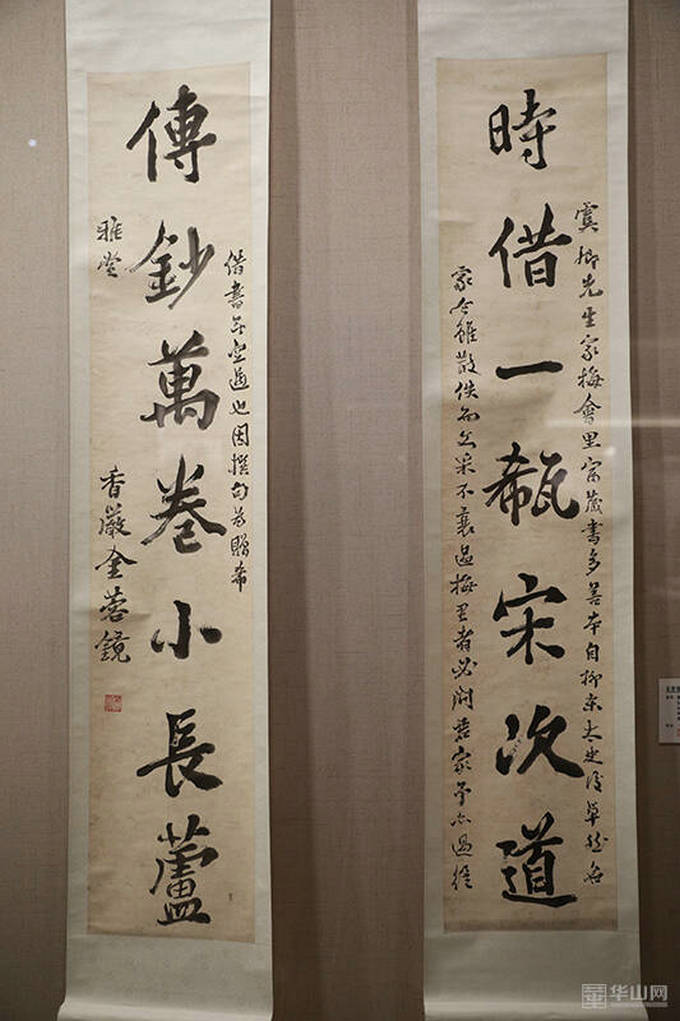 時借一瓻宋次道
卿先生家梅會里富藏書多善本自柳東太史後卓然名
家今雖散佚而文采不衰過梅里者必問君家予亦過從
傳鈔萬卷小長蘆
借書 也因撰句為贈希
雅
香嚴金蓉鏡
华山网